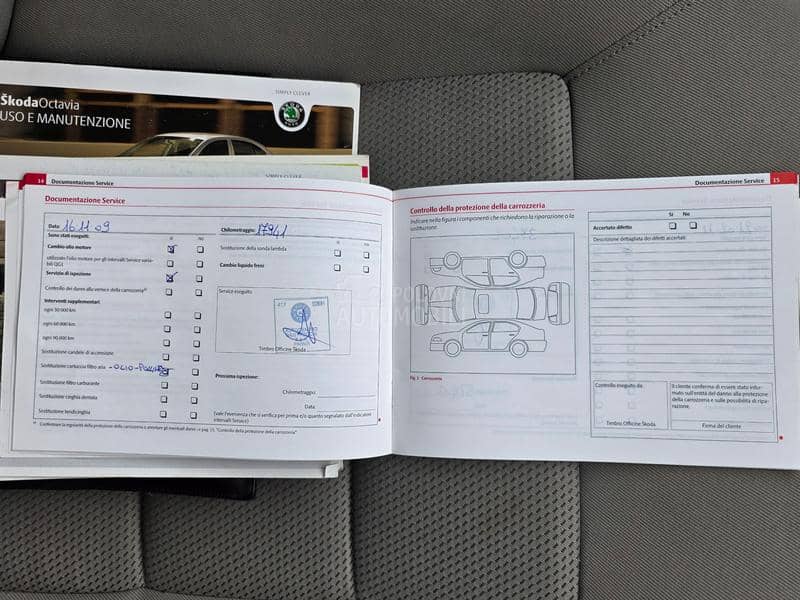 SIMPLY CLEVER
ŠkodaOctavia
USO E MANUTENZIONE
SIMPLY CLEVER
14 Documentazione Service
Documentazione Service
Data: 16.11.09
Chilometraggio: 17941
Sono stati eseguiti:
Sì No
Cambio olio motore
utilizzare l'olio motore per gli intervalli Service varia-
bili QG1
Servizio di ispezione
Controllo dei danni alla vernice della carrozzeria
Interventi supplementari:
ogni 30.000 km
ogni 60.000 km
ogni 90.000 km
Sostituzione candele di accensione
Sostituzione cartuccia filtro aria -OLIO-
Sostituzione filtro carburante
Sostituzione cinghia dentata
Sostituzione tendicinghia
Sì No
Sostituzione della sonda lambda
Cambio liquido freni
Service eseguito
Timbro Officine Škoda
Prossima ispezione:
Chilometraggio:
Data:
(vale l'evenienza che si verifica per prima e/o quanto segnalato dall'indicatore
intervalli Service)
Documentazione Service 15
Controllo della protezione della carrozzeria
Indicare nella figura i componenti che richiedono la riparazione o la
sostituzione.
Fig. 2 Carrozzeria
Sì No
Accertato difetto
Descrizione dettagliata dei difetti accertati:
Controllo eseguito da
Timbro Officine Škoda
Il cliente conferma di essere stato infor-
mato sull'entità del danno alla protezione
della carrozzeria e sulle possibilità di ripa-
razione.
Firma del cliente
POLOVNI
AUTOMOBILI